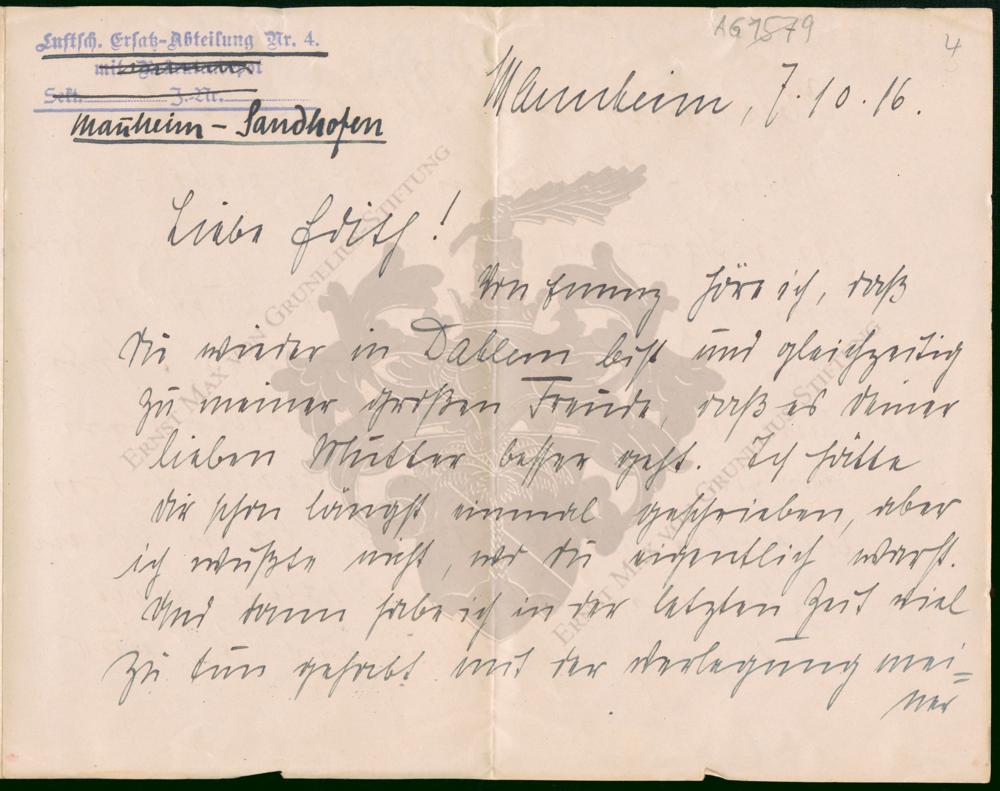 AG 1579
4
Luftsch. Ersatz-Abteilung Nr. 4.
mit
Sekt. J.-Nr.
Mannheim - Sandhofen
Mannheim, 7.10.16.
Liebe Edith!
Von Emmy höre ich, daß
Du wieder in Dahlem bist und gleichzeitig
zu meiner großen Freude, daß es Deiner
lieben Mutter besser geht. Ich hätte
Dir schon längst einmal geschrieben, aber
ich wußte nicht, wo Du eigentlich warst.
Und dann habe ich in der letzten Zeit viel
zu tun gehabt mit der Verlegung mei=
ner
ERNST MAX VON GRUNELIUS STIFTUNG
ERNST MAX VON GRUNELIUS STIFTUNG